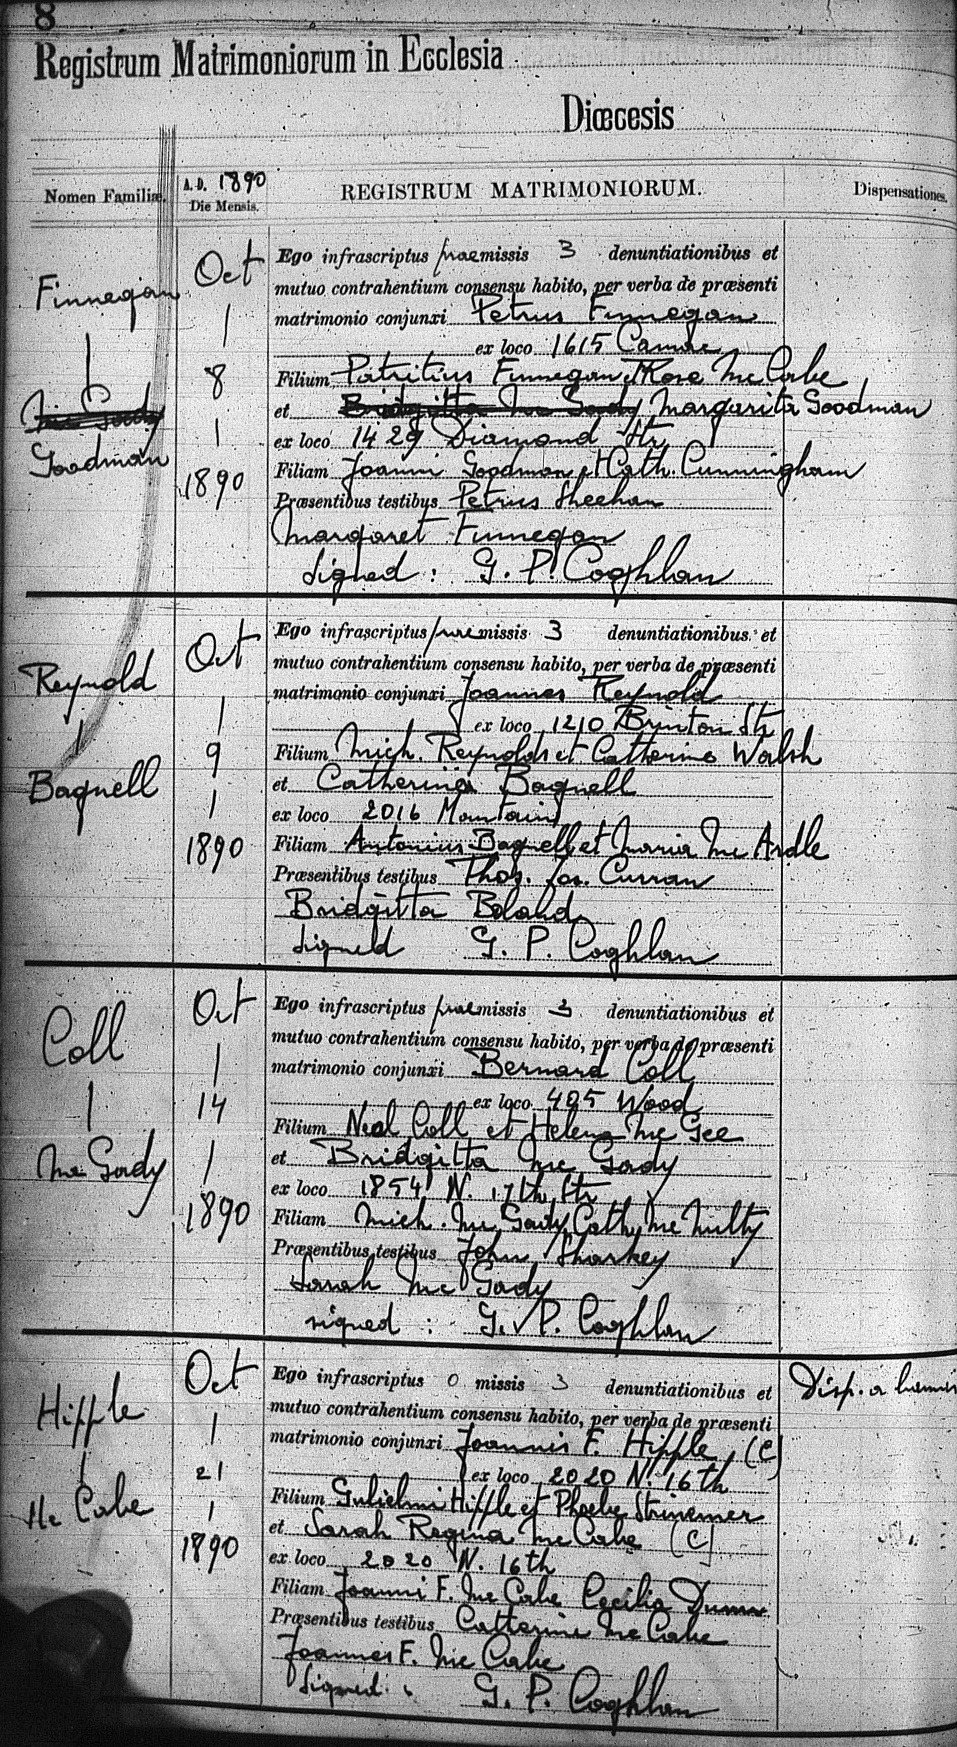 8
Registrum Matrimoniorum in Ecclesia
Diœcesis
Nomen Familiæ.
A.D. 1890
Die Mensis.
REGISTRUM MATRIMONIORUM.
Dispensationes.
Finnegan
Mc Gady
Goodman
Oct
8
1890
Ego infrascriptus praemissis 3 denuntiationibus et
mutuo contrahentium consensu habito, per verba de præsenti
matrimonio conjunxi Petrus Finnegan
ex loco 1615 Camac
Filium Patritius Finnegan & Rose Mc Cabe
et Bridgitta Mc Gady Margarita Goodman
ex loco 1429 Diamond Str
Filiam Joanni Goodman et Cath. Cunningham
Præsentibus testibus Petrus Sheehan
Margaret Finnegan
Signed : G. P. Coghlan
Reynold
Bagnell
Oct
9
1890
Ego infrascriptus praemissis 3 denuntiationibus et
mutuo contrahentium consensu habito, per verba de præsenti
matrimonio conjunxi Joannes Reynold
ex loco 1210 Brinton Str
Filium Mich. Reynolds et Catherine Walsh
et Catherina Bagnell
ex loco 2016 Mountain
Filiam Antonius Bagnell et Maria Mc Ardle
Præsentibus testibus Thos. Jos. Curran
Bridgitta Boland
signed G. P. Coghlan
Coll
Mc Gady
Oct
14
1890
Ego infrascriptus praemissis 3 denuntiationibus et
mutuo contrahentium consensu habito, per verba de præsenti
matrimonio conjunxi Bernard Coll
ex loco 405 Wood
Filium Neal Coll et Helena Mc Gee
et Bridgitta Mc Gady
ex loco 1854 N. 17th Str
Filiam Mich. Mc Gady Cath. Mc Nulty
Præsentibus testibus John Sharkey
Sarah Mc Gady
signed : G. P. Coghlan
Hipple
Mc Cabe
Oct
21
1890
Ego infrascriptus 0 missis 3 denuntiationibus et
mutuo contrahentium consensu habito, per verba de præsenti
matrimonio conjunxi Joannis F. Hipple (C)
ex loco 2020 N. 16th
Filium Gulielmi Hipple et Phoebe Strinemer
et Sarah Regina Mc Cabe (C)
ex loco 2020 N. 16th
Filiam Joanni F. Mc Cabe Cecilia Dunn
Præsentibus testibus Catterine Mc Cabe
Joannes F. Mc Cabe
Signed : G. P. Coghlan
Disp. a bannis